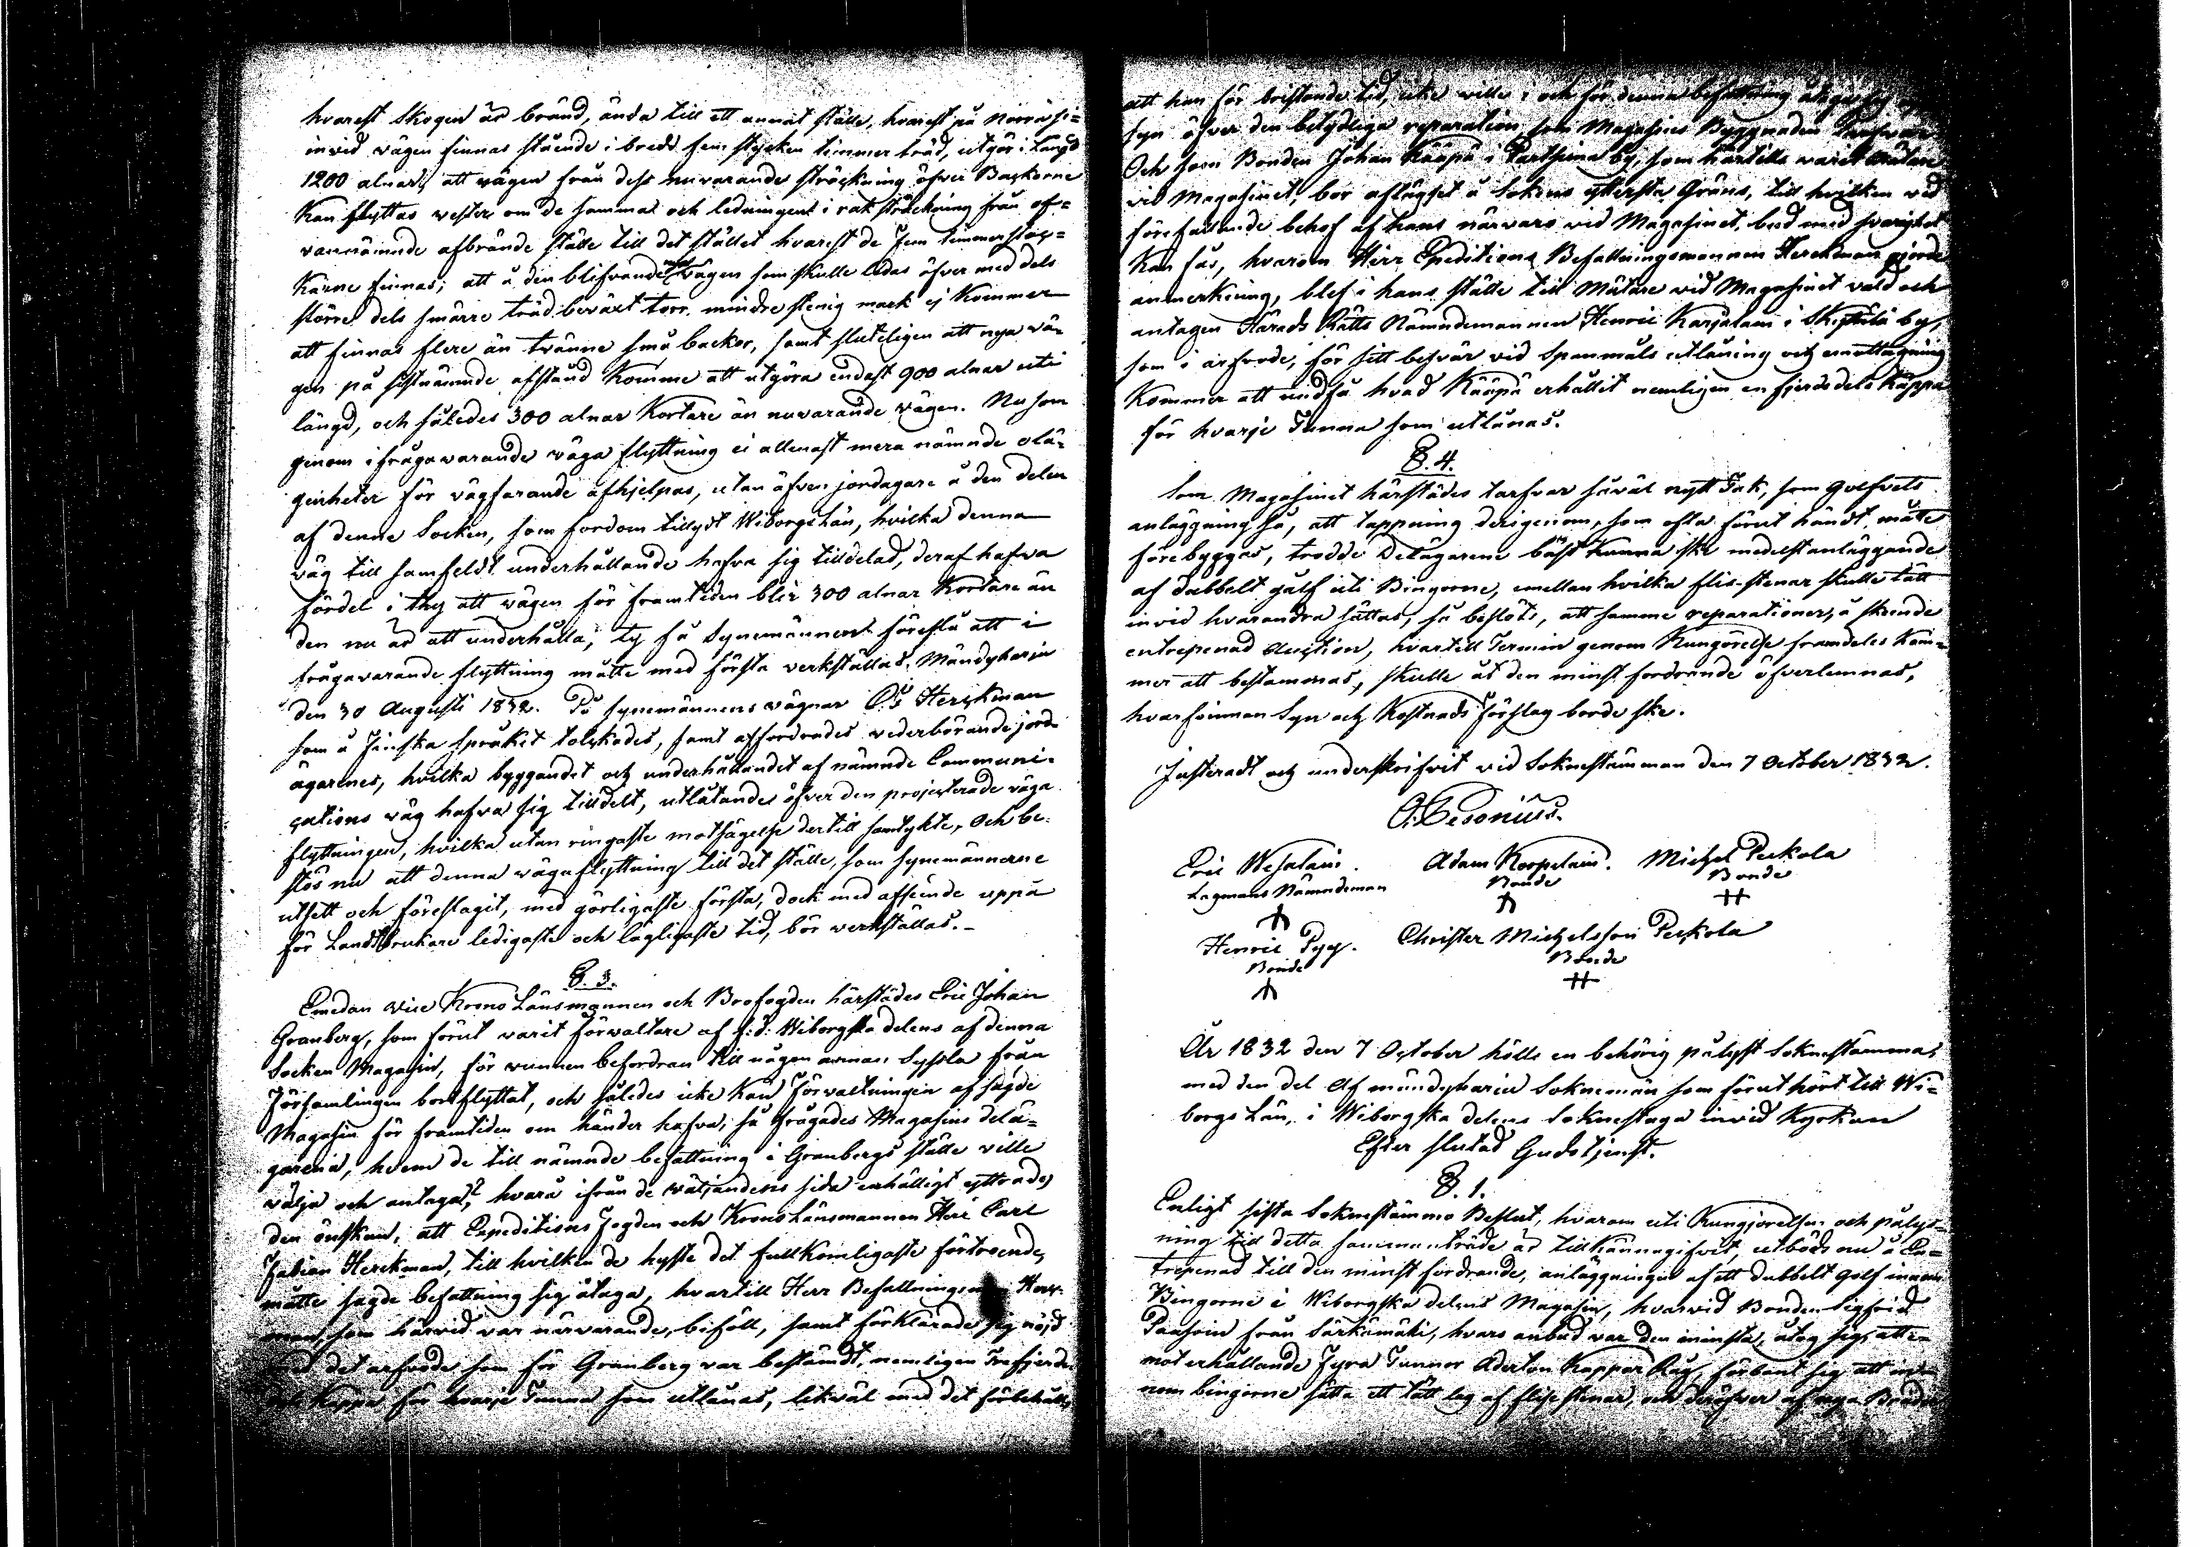 hvarest Skogen är bränd, ända till ett annat ställe, hvarest på Norra si=
invid vägen finnas stående i bredd fem stycken timmer träd, utgör i Längd
1200 alnar; att vägen från dess nuvarande sträckning öfver Backorne
Kan flyttas vester om de samma och ledningens i rak sträckning från of=
vannämnde afbrände ställe till det stället hvarest de fem timmerstoc=
karne finnas; att å den blifvande vägen som skulle ledas öfver med dels
större dels smärre träd beväxt torr mindre stenig mark ej Kommer
att finnas flere än tvänne små backar, samt sluteligen att nya vä=
gen på sistnämnde afstånd Komme att utgöra endast 900 alnar uti
längd, och således 300 alnar Kortare än nuvarande vägen. Nu som
genom ifrågavarande väga flyttning ei allenast mera nämnde olä=
genheter för vägfarande afhjelpas, utan äfven jordagare å den delen
af denne Socken, som fordom tillydt Wiborgs Län, hvilka denna
väg till samfeldt underhållande hafva sig tilldelad, deraf hafva
fördel i thy att vägen för framtiden blir 300 alnar Kortare än
den nu är att underhålla; ty få Synemännerne föreslå att i
frågavarande flyttning måtte med första verkställas. Mändyharju
den 30 Augusti 1832. På synemännens vägnar C. F. Herckman
som å Finska språket tolckades, samt affordrades vederbörande jord=
ägarenes, hvilka byggandet och underhållandet af nämnde Communi=
cations väg hafva sig tilldelt, utlåtande öfver den projecterade väga
flyttningen, hvilka utan ringaste motsägelse dertill samtykte, och be=
slös nu att denna vägaflyttning till det ställe, som synemännerne
utsett och föreslagit, med görligaste första, dock med afseende uppå
för Landtbrukare ledigaste och lägligaste tid, bör verkställas.
§. 3.
Emedan vice Krono Länsmannen och Brofogden härstädes Eric Johan
Granberg, som förut varit förvaltare af f: d: Wiborgska delens af denna
Socken Magasin, för vunnen befordran till någon annan Syssla från
Församlingen bortflyttat, och således icke kan Förvaltningen af sagde
Magasin för framtiden om händer hafva; så frågades Magasins delä=
garena, hvem de till nämnde befattning i Granbergs ställe ville
välja och antaga? hvarå ifrån de wäljandens sida enhälligt yttrades
den önskan, att Expeditions Fogden och Krono Länsmannen Herr Carl
Fabian Herckman, till hvilken de hyste det fullkomligaste förtroende,
måtte sagde befattning sig åtaga, hvartill Herr Befallningsman Herck=
man, som härvid var närvarande, biföll, samt förklarade sig nöjd
med det arfvode som för Granberg var bestämdt, nemligen Trefjerde
dels Kappe för hvarje Tunna som utlånas, likväl med det förbehåll,
att han för bristande tid, icke ville i och för denna befattning åtaga sig
syn öfver den betydliga reparation som Magasins Byggnaden
Och som Bonden Johan Kääpä i Partsima by, som härtills varit Mätare
vid Magasinet, bor aflägset å Soknens yttersta Gräns, till hvilken vid
förefallande behof af hans närvaro vid Magasinet, bud med svårighet
Kan fås, hvarom Herr Expeditions Befallningsmannen Herckman gjorde
anmerkning, blef i hans ställe till Mätare vid Magasinet vald och
antagen Härads Rätts Nämndemannen Henric Karjalain i by,
som i arfvode, för sitt besvär vid Spanmåls utlåning och emottagning
Kommer att undfå hvad Kääpä erhållit nemligen en fjerdedels Kappa
för hvarje Tunna som utlånas.
§. 4.
Som Magasinet härstädes tarfvar såväl nytt Tak, som Golfvets
anläggning så, att tappning derigenom, som ofta förut händt, måtte
förebyggas, trodde Delägarena bäst kunna ske medelst anläggande
af dubbelt gålf uti Bingorne, emellan hvilka flis-stenar skulle tätt
invid hvarandra sättas, så beslöts, att samme reparationer, å skeende
entrepenad Auction, hvartill Termin genom Kungörelse framdeles Kom=
mer att bestämmas, skulle åt den minst fordrande öfverlemnas,
hvarförinnan Syn och Kostnads Förslag borde ske.
Justeradt och underskrifvit vid Soknestämman den 7 October 1832.
O. Cesonius.
Eric Wesalain. Adam Korpelain. Michel Peckola
Lagmans Nämndeman Bonde Bonde
Henric Pyy. Christer Michelsson Peckola
Bonde Bonde
År 1832 den 7 October hölls en behörig pålyst Soknestämma,
med den del af mändyharju Soknemän som förut hört till Wi=
borgs Län, i Wiborgska delens Soknestuga invid Kyrkan
Efter slutad Gudstjenst.
§. 1.
Enligt sista Soknestämmo Beslut, hvarom uti Kungjörelsen och pålys=
ning till detta sammanträde är tillkännagifvit, utböds nu å En=
trepenad till den minst fordrande, anläggningen af ett dubbelt Golf innom
Bingorne i Wiborgska delens Magasin, hvarvid Bonden Sigfrid
Paasoin från Särkämäki, hvars anbud var den minsta, åtog sig, att e=
mot erhållande Fyra Tunnor Aderton Kappar Råg, förbant sig att in=
nom bingorne sätta ett tätt lag af flisestenar, och deröfver af nya Bräder